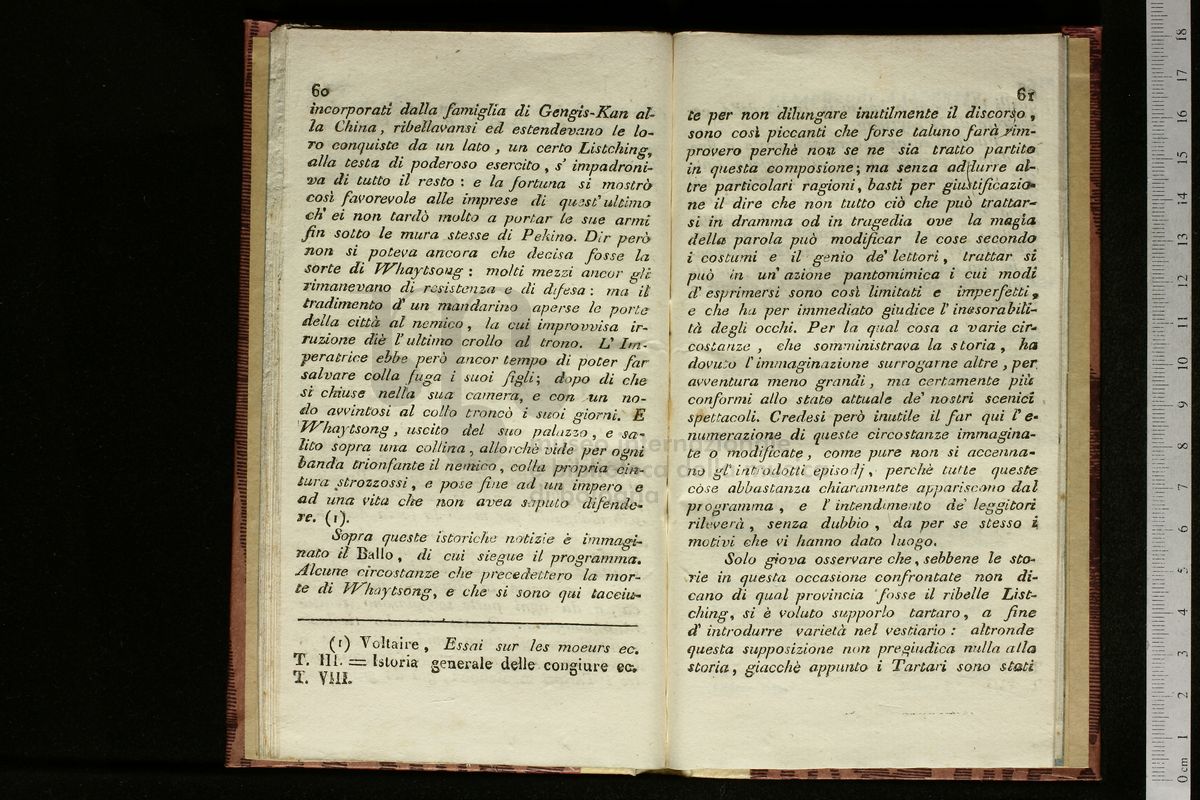 60
incorporati dalla famiglia di Gengis-Kan al-
la China, ribellavansi ed estendevano le lo-
ro conquiste da un lato, un certo Listching,
alla testa di poderoso esercito, s' impadroni-
va di tutto il resto: e la fortuna si mostrò
così favorevole alle imprese di quest' ultimo
ch' ei non tardò molto a portar le sue armi
fin sotto le mura stesse di Pekino. Dir però
non si poteva ancora che decisa fosse la
sorte di Whaytsong: molti mezzi ancor gli
rimanevano di resistenza e di difesa: ma il
tradimento d' un mandarino aperse le porte
della città al nemico, la cui improvvisa ir-
ruzione diè l' ultimo crollo al trono. L' Im-
peratrice ebbe però ancor tempo di poter far
salvare colla fuga i suoi figli; dopo di che
si chiuse nella sua camera, e con un no-
do avvintosi al collo troncò i suoi giorni. E
Whaytsong, uscito del suo palazzo, e sa-
lito sopra una collina, allorchè vide per ogni
banda trionfante il nemico, colla propria cin-
tura strozzossi, e pose fine ad un impero e
ad una vita che non avea saputo difende-
re. (1).
Sopra queste istoriche notizie è immagi-
nato il Ballo, di cui siegue il programma.
Alcune circostanze che precedettero la mor-
te di Whaytsong, e che si sono qui tacciu-
(1) Voltaire, Essai sur les moeurs ec.
T. III. = Istoria generale delle congiure ec.
T. VIII.
61
te per non dilungare inutilmente il discorso,
sono così piccanti che forse taluno farà rim-
provero perchè non se ne sia tratto partito
in questa composione; ma senza addurre al-
tre particolari ragioni, basti per giustificazio-
ne il dire che non tutto ciò che può trattar-
si in dramma od in tragedia ove la magia
della parola può modificar le cose secondo
i costumi e il genio de' lettori, trattar si
può in un' azione pantomimica i cui modi
d' esprimersi sono così limitati e imperfetti,
e che ha per immediato giudice l' inesorabili-
tà degli occhi. Per la qual cosa a varie cir-
costanze, che somministrava la storia, ha
dovuto l' immaginazione surrogarne altre, per
avventura meno grandi, ma certamente più
conformi allo stato attuale de' nostri scenici
spettacoli. Credesi però inutile il far qui l' e-
numerazione di queste circostanze immagina-
te o modificate, come pure non si accenna-
no gl' introdotti episodj, perchè tutte queste
cose abbastanza chiaramente appariscono dal
programma, e l' intendimento de' leggitori
rileverà, senza dubbio, da per se stesso i
motivi che vi hanno dato luogo.
Solo giova osservare che, sebbene le sto-
rie in questa occasione confrontate non di-
cano di qual provincia fosse il ribelle List-
ching, si è voluto supporlo tartaro, a fine
d' introdurre varietà nel vestiario: altronde
questa supposizione non pregiudica nulla alla
storia, giacchè appunto i Tartari sono stati